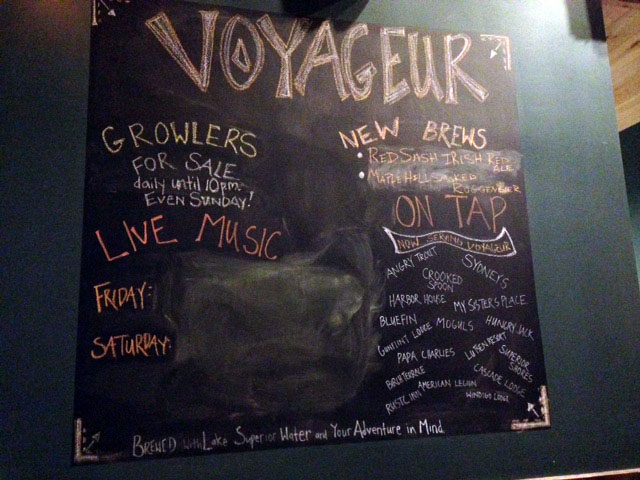 VOYAGEUR
GROWLERS
FOR SALE
daily until 10pm
EVEN SUNDAY!
LIVE MUSIC
FRIDAY:
SATURDAY:
NEW BREWS
• RED SASH IRISH RED
ALE
• MAPLE HILL SMOKED
ROGGENBIER
ON TAP
NOW SERVING VOYAGEUR
ANGRY TROUT
SYDNEY'S
CROOKED
SPOON
HARBOR HOUSE
MY SISTERS PLACE
BLUEFIN
GUNFLINT LODGE
MOGULS
HUNGRY JACK
PAPA CHARLIES
LUTSEN RESORT
SUPERIOR
SHORES
BIRCH TERRACE
AMERICAN LEGION
CASCADE LODGE
RUSTIC INN
WINDIGO LODGE
BREWED with Lake Superior Water and Your Adventure in Mind